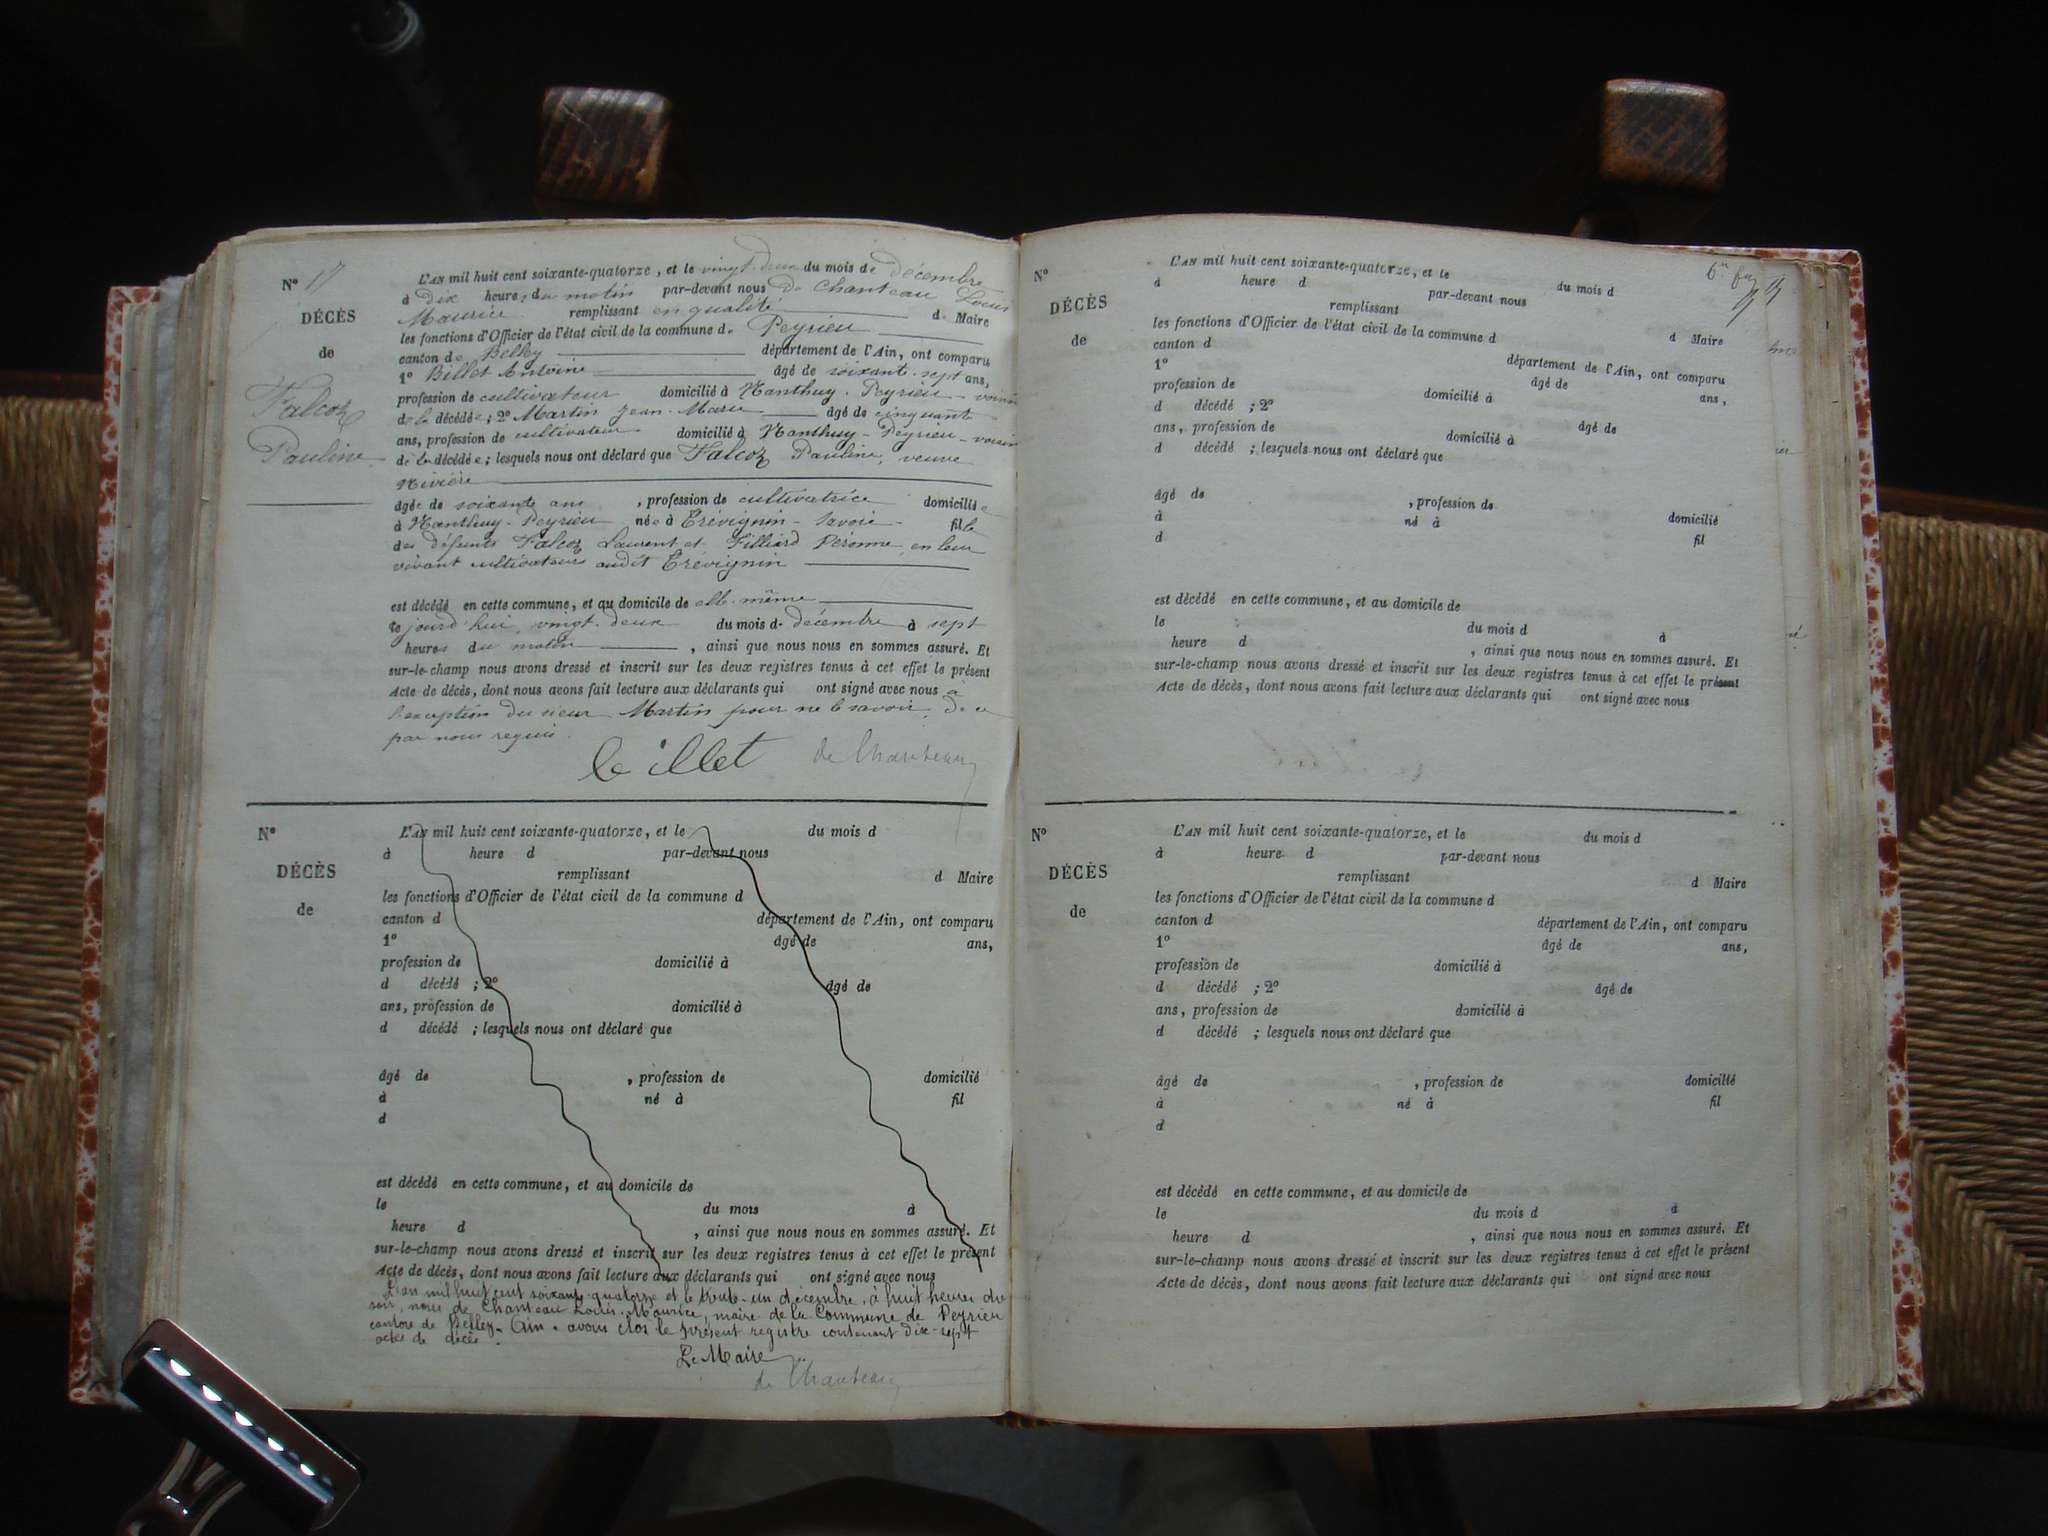 N° 17
DÉCÈS
de
Falcoz
Pauline
L'AN mil huit cent soixante-quatorze, et le vingt-deux du mois de décembre
à dix heures du matin par-devant nous de Chanteau Louis
Maurice remplissant en qualité de Maire
les fonctions d'Officier de l'état civil de la commune de Peyrieu
canton de Belley département de l'Ain, ont comparu
1° Billet Antoine âgé de soixante-sept ans,
profession de cultivateur domicilié à Nanthuy-Peyrieu-voisin
de la décédée ; 2° Martin Jean-Marie âgé de cinquante
ans, profession de cultivateur domicilié à Nanthuy-Peyrieu-voisin
de la décédée ; lesquels nous ont déclaré que Falcoz Pauline, veuve
Rivière
âgée de soixante ans , profession de cultivatrice domiciliée
à Nanthuy-Peyrieu née à Trévignin-Savoie- fille
des défunts Falcoz Laurent et Filliard Péronne, en leur
vivant cultivateurs audit Trévignin
est décédé en cette commune, et au domicile de elle-même
le jourd'hui, vingt-deux du mois de décembre à sept
heures du matin , ainsi que nous nous en sommes assuré. Et
sur-le-champ nous avons dressé et inscrit sur les deux registres tenus à cet effet le présent
Acte de décès, dont nous avons fait lecture aux déclarants qui ont signé avec nous à
l'exception du sieur Martin pour ne le savoir, de ce
par nous requis.
billet de Chanteau
N°
DÉCÈS
de
L'AN mil huit cent soixante-quatorze, et le du mois d
à heure d par-devant nous
remplissant d Maire
les fonctions d'Officier de l'état civil de la commune d
canton d département de l'Ain, ont comparu
1° âgé de ans,
profession de domicilié à
d décédé ; 2° âgé de
ans, profession de domicilié à
d décédé ; lesquels nous ont déclaré que
âgé de , profession de domicilié
à né à fil
d
est décédé en cette commune, et au domicile de
le du mois à
heure d , ainsi que nous nous en sommes assuré. Et
sur-le-champ nous avons dressé et inscrit sur les deux registres tenus à cet effet le présent
Acte de décès, dont nous avons fait lecture aux déclarants qui ont signé avec nous
L'an mil huit cent soixante-quatorze et le trente-un décembre, à huit heures du
soir, nous de Chanteau Louis-Maurice, maire de la Commune de Peyrieu
canton de Belley. Ain. avons clos le présent registre contenant dix-sept
actes de décès.
Le Maire
de Chanteau
N°
DÉCÈS
de
L'AN mil huit cent soixante-quatorze, et le du mois d
à heure d par-devant nous
remplissant d Maire
les fonctions d'Officier de l'état civil de la commune d
canton d département de l'Ain, ont comparu
1° âgé de ans,
profession de domicilié à
d décédé ; 2° âgé de
ans, profession de domicilié à
d décédé ; lesquels nous ont déclaré que
âgé de , profession de
à né à domicilié
d fil
est décédé en cette commune, et au domicile de
le du mois d à
heure d , ainsi que nous nous en sommes assuré. Et
sur-le-champ nous avons dressé et inscrit sur les deux registres tenus à cet effet le présent
Acte de décès, dont nous avons fait lecture aux déclarants qui ont signé avec nous
N°
DÉCÈS
de
L'AN mil huit cent soixante-quatorze, et le du mois d
à heure d par-devant nous
remplissant d Maire
les fonctions d'Officier de l'état civil de la commune d
canton d département de l'Ain, ont comparu
1° âgé de ans,
profession de domicilié à
d décédé ; 2° âgé de
ans, profession de domicilié à
d décédé ; lesquels nous ont déclaré que
âgé de , profession de domicilié
à né à fil
d
est décédé en cette commune, et au domicile de
le du mois d à
heure d , ainsi que nous nous en sommes assuré. Et
sur-le-champ nous avons dressé et inscrit sur les deux registres tenus à cet effet le présent
Acte de décès, dont nous avons fait lecture aux déclarants qui ont signé avec nous